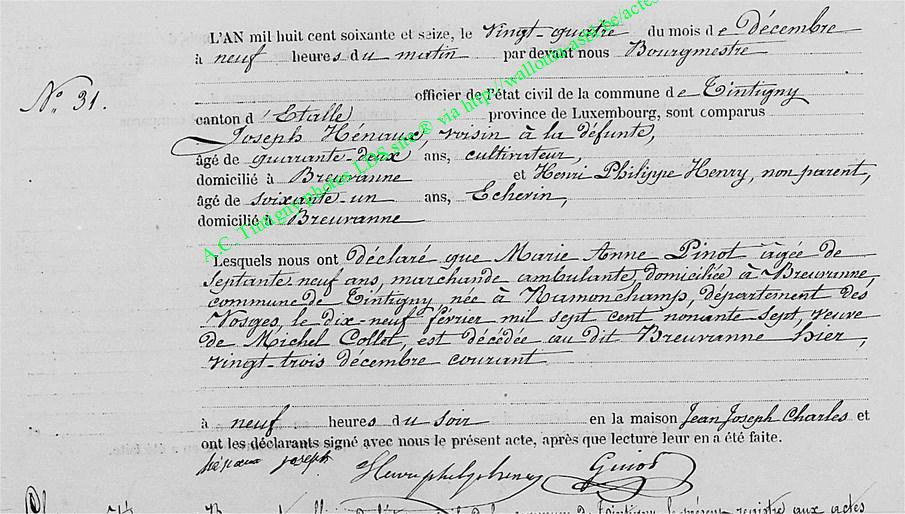 L'AN mil huit cent soixante et seize, le vingt-quatre du mois de Décembre
à neuf heures du matin par devant nous Bourgmestre
N° 31.
officier de l'état civil de la commune de Tintigny
canton d'Etalle province de Luxembourg, sont comparus
Joseph Hénaux, voisin à la défunte,
âgé de quarante-deux ans, cultivateur,
domicilié à Breuvanne et Henri Philippe Henry, non parent,
âgé de soixante-un ans, Echevin,
domicilié à Breuvanne
Lesquels nous ont déclaré que Marie Anne Pinot âgée de
septante neuf ans, marchande ambulante, domiciliée à Breuvanne,
commune de Tintigny, née à Ramonchamp, département des
Vosges, le dix-neuf février mil sept cent nonante sept, veuve
de Michel Collot, est décédée au dit Breuvanne hier,
vingt-trois décembre courant
à neuf heures du soir en la maison Jean Joseph Charles et
ont les déclarants signé avec nous le présent acte, après que lecture leur en a été faite.
hénaux joseph
A.C. Tintigny photos LDS site® via http://wallonica